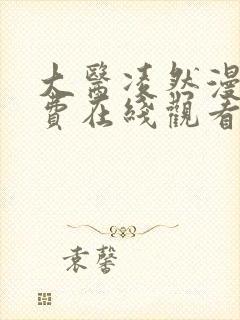 大醫凌然漫
費在綫觀看
袁馨